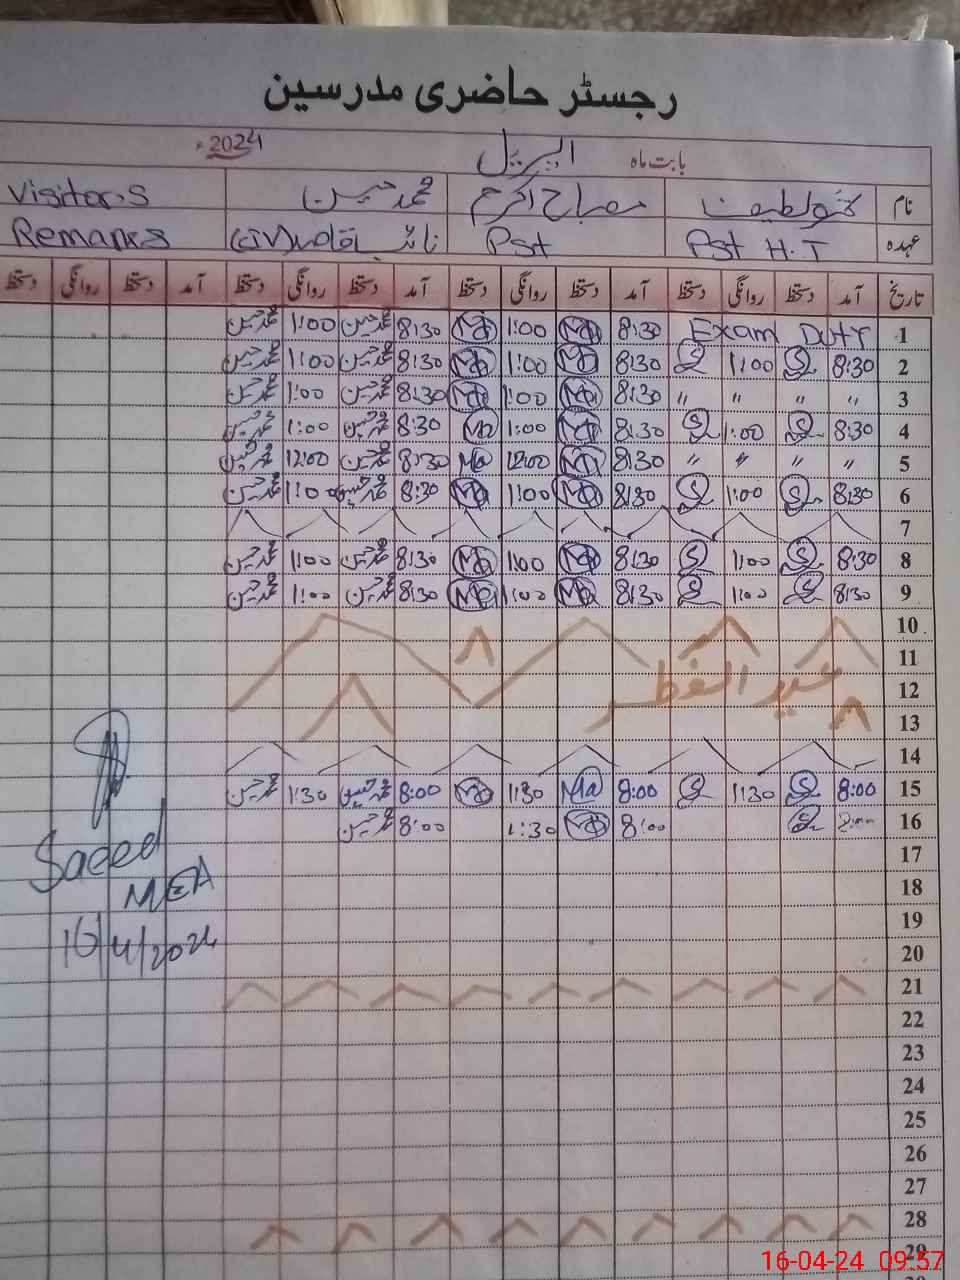 رجسٹر حاضری مدرسین
بابت ماہ اپریل 2024ء
نام کنول لطیف مصباح اکرم محمد حسین Visitor,s
عہدہ Pst H.T Pst نائب قاصد (C-IV) Remarks
تاریخ آمد دستخط روانگی دستخط آمد دستخط روانگی دستخط آمد دستخط روانگی دستخط آمد دستخط روانگی دستخط
1 Exam Duty 8:30 Ma 1:00 Ma 8:30 محمد حسین 1:00 محمد حسین
2 8:30 S 1:00 S 8:30 Ma 1:00 Ma 8:30 محمد حسین 1:00 محمد حسین
3 " " " " 8:30 Ma 1:00 Ma 8:30 محمد حسین 1:00 محمد حسین
4 8:30 S 1:00 S 8:30 Ma 1:00 Ma 8:30 محمد حسین 1:00 محمد حسین
5 " " " " 8:30 Ma 12:00 Ma 8:30 محمد حسین 12:00 محمد حسین
6 8:30 S 1:00 S 8:30 Ma 1:00 Ma 8:30 محمد حسین 1:00 محمد حسین
7
8 8:30 S 1:00 S 8:30 Ma 1:00 Ma 8:30 محمد حسین 1:00 محمد حسین
9 8:30 S 1:00 S 8:30 Ma 1:00 Ma 8:30 محمد حسین 1:00 محمد حسین
10
11
12 عید الفطر
13
14
15 8:00 S 1:30 S 8:00 Ma 1:30 Ma 8:00 محمد حسین 1:30 محمد حسین
16 S 8:00 Ma 1:30 8:00 محمد حسین
17
18
19
20
21
22
23
24
25
26
27
28
29
Saeed
MEA
16/4/2024
16-04-24 09:57